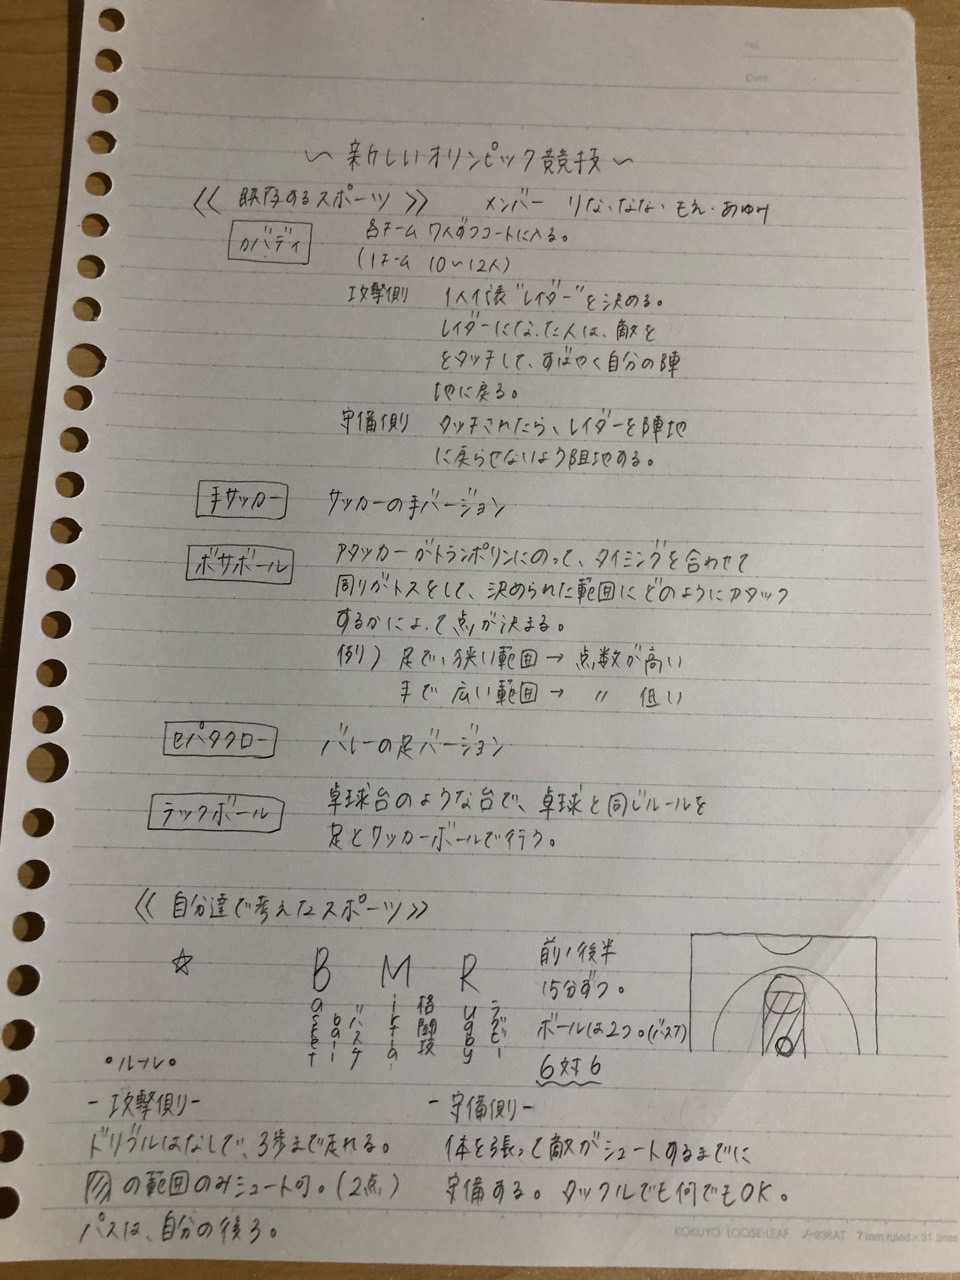 No.
Date
〜 新しいオリンピック競技 〜
≪ 既存するスポーツ ≫ メンバー りな・なな・もえ・あゆみ
カバディ 各チーム 7人ずつコートに入る。
(1チーム 10〜12人)
攻撃側 1人代表"レイダー"を決める。
レイダーになった人は、敵を
をタッチして、すばやく自分の陣
地に戻る。
守備側 タッチされたら、レイダーを陣地
に戻らせないよう阻地する。
手サッカー サッカーの手バージョン
ボサボール アタッカーがトランポリンにのって、タイミングを合わせて
周りがトスをして、決められた範囲にどのようにアタック
するかによって点が決まる。
例) 足で、狭い範囲 → 点数が高い
手で 広い範囲 → 〃 低い
セパタクロー バレーの足バージョン
テックボール 卓球台のような台で、卓球と同じルールを
足とサッカーボールで行う。
≪ 自分達で考えたスポーツ ≫
☆ B M R 前・後半
15分ずつ。
バスケ 格闘技 ラグビー ボールは2つ。(バスケ)
6対6
°ルール°
-攻撃側- -守備側-
ドリブルはなしで、3歩まで走れる。 体を張って敵がシュートするまでに
の範囲のみシュート可。(2点) 守備する。タックルでも何でもOK。
パスは、自分の後ろ。
KOKUYO LOOSE-LEAF ノ-836AT 7 mm ruled×31 lines